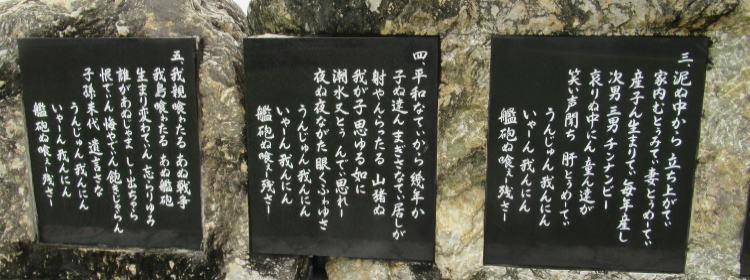 三、泥ぬ中から 立ち上がてぃ
家内むとぅみてぃ 妻とぅめーてぃ
産子ん生まりてぃ 毎年産し
次男 三男 チンナンビー
哀りぬ中にん 童ん達が
笑い声聞ち 肝とぅめーてぃ
うんじゅん 我んにん
いゃーん 我んにん
艦砲ぬ喰ぇー残さー
四、平和なてぃから 幾年か
子ぬ達ん まぎさなてぃ居しが
射やんらったる 山猪ぬ
我が子思ゆる如に
潮水又とぅ んでぃ思れー
夜ぬ夜ながた 眼くふゎゆさ
うんじゅん 我んにん
いゃーん 我んにん
艦砲ぬ喰ぇー残さー
五、我親喰ゎたる あぬ戦争
我島喰ゎたる あぬ艦砲
生まり変わてぃん 忘らりゆみ
誰があぬじゃま しー出ちゃら
恨でぃん 悔やでぃん 飽きじゃらん
子孫末代 遺言さな
うんじゅん 我んにん
いゃーん 我んにん
艦砲ぬ喰ぇー残さー